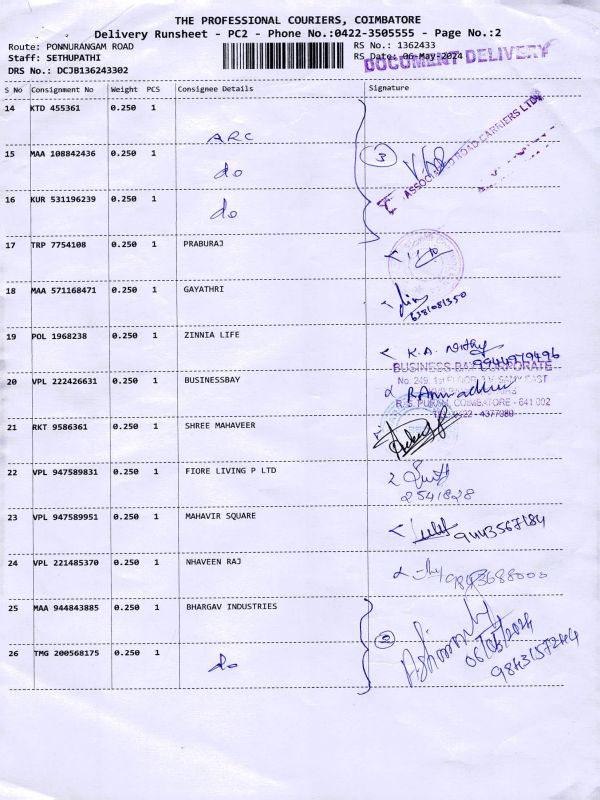 THE PROFESSIONAL COURIERS, COIMBATORE
Delivery Runsheet - PC2 - Phone No.:0422-3505555 - Page No.:2
Route: PONNURANGAM ROAD RS No.: 1362433
Staff: SETHUPATHI RS Date: 06-May-2024
DOCUMENT DELIVERY
DRS No.: DCJB136243302
S No Consignment No Weight PCS Consignee Details Signature
14 KTD 455361 0.250 1 ARC
15 MAA 108842436 0.250 1 do
3
ASSOCIATED ROAD CARRIERS LTD
16 KUR 531196239 0.250 1 do
17 TRP 7754108 0.250 1 PRABURAJ
18 MAA 571168471 0.250 1 GAYATHRI
6381081350
19 POL 1968238 0.250 1 ZINNIA LIFE
K.A.
9944979496
BUSINESS BAY CORPORATE
20 VPL 222426631 0.250 1 BUSINESSBAY
R.S. PURAM, COIMBATORE - 641 002
0422 - 4377080
21 RKT 9586361 0.250 1 SHREE MAHAVEER
22 VPL 947589831 0.250 1 FIORE LIVING P LTD
2541828
23 VPL 947589951 0.250 1 MAHAVIR SQUARE
9443567184
24 VPL 221485370 0.250 1 NHAVEEN RAJ
9843688000
25 MAA 944843885 0.250 1 BHARGAV INDUSTRIES
2
06/05/2024
26 TMG 200568175 0.250 1 do